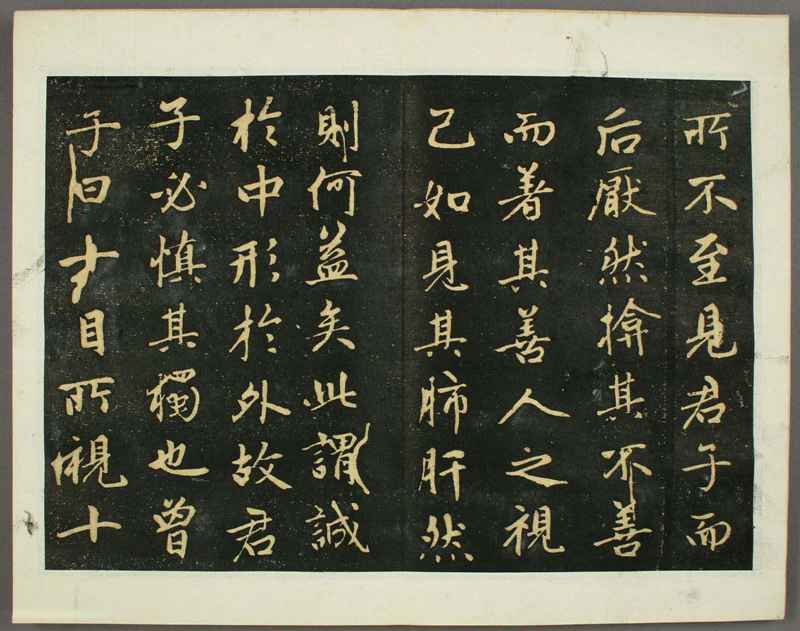 所不至見君子而
后厭然揜其不善
而著其善人之視
己如見其肺肝然
則何益矣此謂誠
於中形於外故君
子必慎其獨也曾
子曰十目所視十